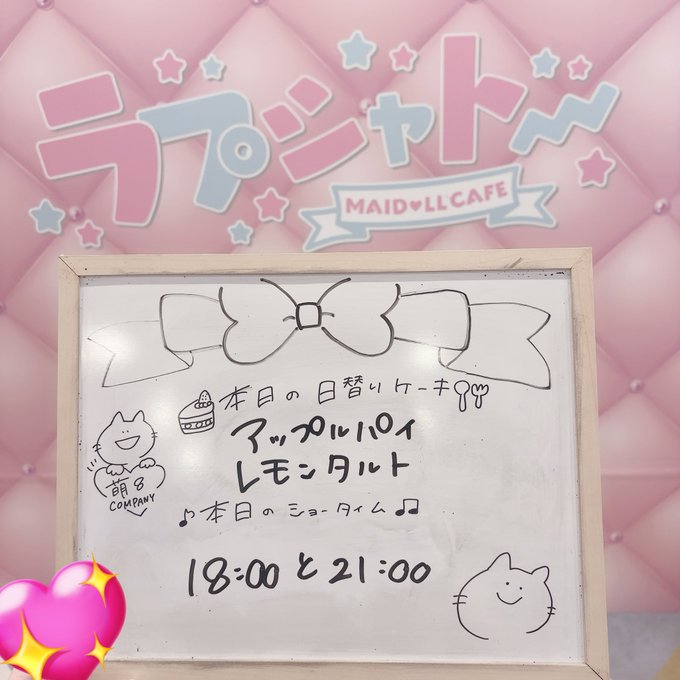 ラプシャトー
MAID♥LL CAFE
本日の日替りケーキ
アップルパイ
レモンタルト
萌8
COMPANY
♪本日のショータイム♫
18:00と21:00